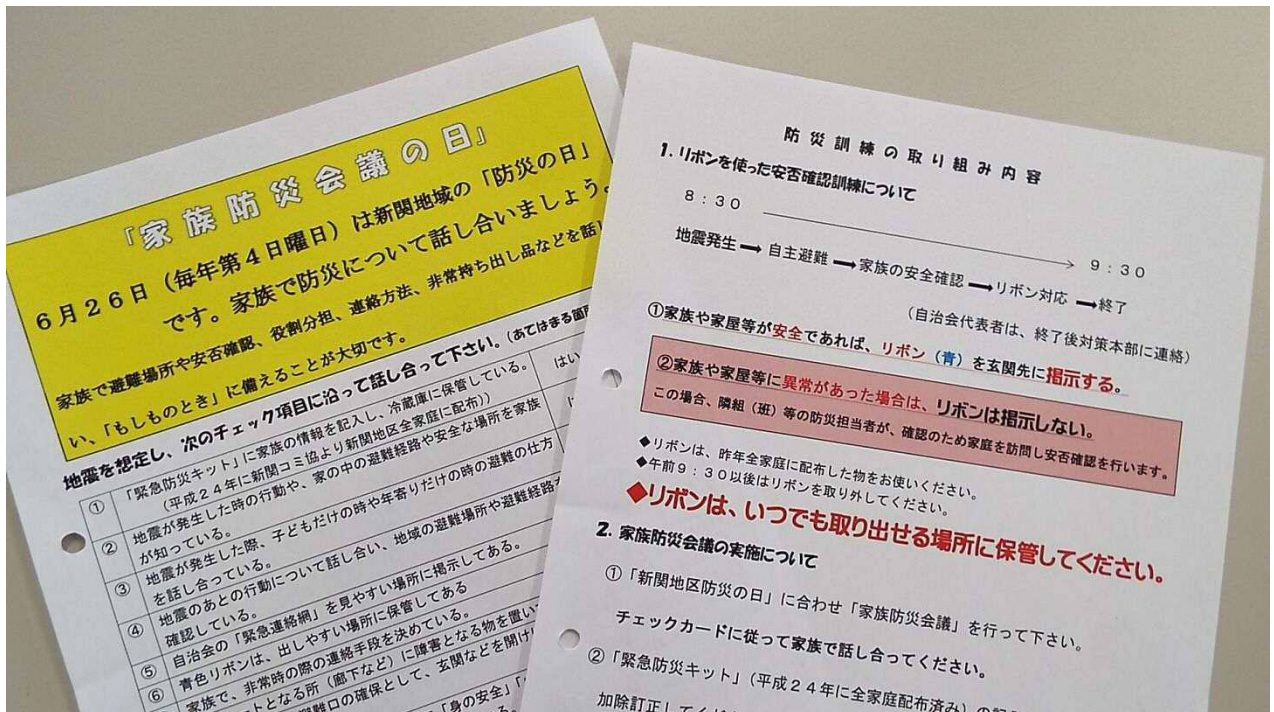 「家族防災会議の日」
6月26日（毎年第4日曜日）は新関地域の「防災の日」
です。家族で防災について話し合いましょう。
家族で避難場所や安否確認、役割分担、連絡方法、非常持ち出し品などを話
い、「もしものとき」に備えることが大切です。
地震を想定し、次のチェック項目に沿って話し合って下さい。（あてはまる箇所
① 「緊急防災キット」に家族の情報を記入し、冷蔵庫に保管している。 はい
（平成24年に新関コミ協より新関地区全家庭に配布））
② 地震が発生した時の行動や、家の中の避難経路や安全な場所を家族
が知っている。
③ 地震が発生した際、子どもだけの時や年寄りだけの時の避難の仕方
を話し合っている。
④ 地震のあとの行動について話し合い、地域の避難場所や避難経路
確認している。
⑤ 自治会の「緊急連絡網」を見やすい場所に掲示してある。
⑥ 青色リボンは、出しやすい場所に保管してある
家族で、非常時の際の連絡手段を決めている。
トとなる所（廊下など）に障害となる物を置い
避難口の確保として、玄関などを開け
「身の安全」
防災訓練の取り組み内容
1. リボンを使った安否確認訓練について
8：30 → 9：30
地震発生 → 自主避難 → 家族の安全確認 → リボン対応 → 終了
（自治会代表者は、終了後対策本部に連絡）
①家族や家屋等が安全であれば、リボン（青）を玄関先に掲示する。
②家族や家屋等に異常があった場合は、リボンは掲示しない。
この場合、隣組（班）等の防災担当者が、確認のため家庭を訪問し安否確認を行います。
◆リボンは、昨年全家庭に配布した物をお使いください。
◆午前9：30以後はリボンを取り外してください。
◆リボンは、いつでも取り出せる場所に保管してください。
2. 家族防災会議の実施について
①「新関地区防災の日」に合わせ「家族防災会議」を行って下さい。
チェックカードに従って家族で話し合ってください。
②「緊急防災キット」（平成24年に全家庭配布済み）の記
加除訂正してくだ